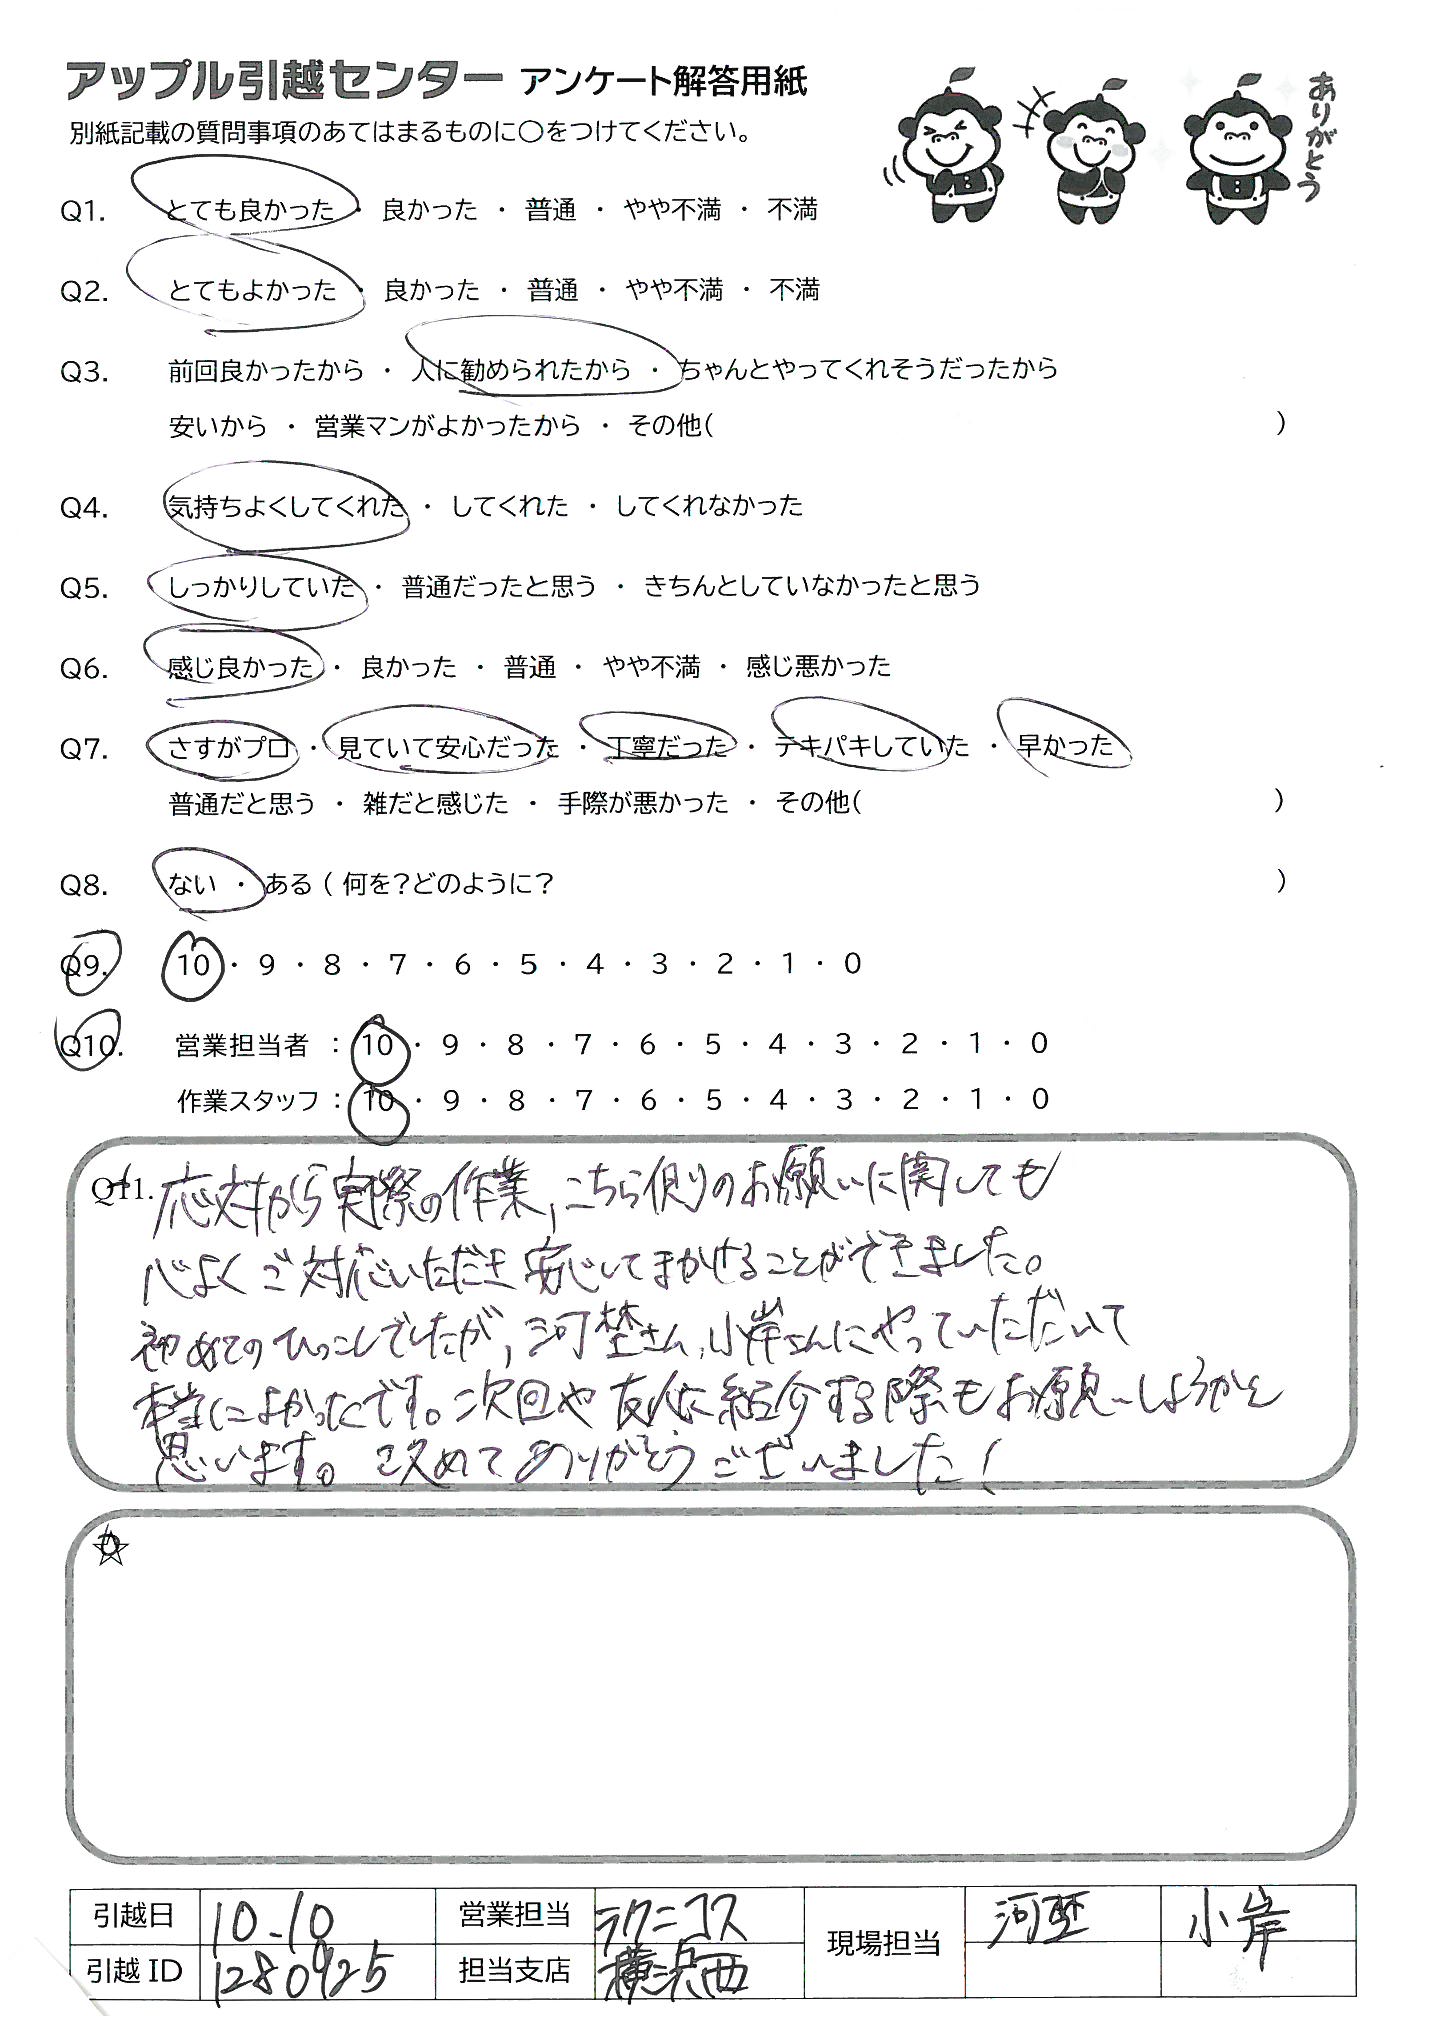 アップル引越センター アンケート解答用紙
別紙記載の質問事項のあてはまるものに〇をつけてください。
ありがとう
Q1. とても良かった ・ 良かった ・ 普通 ・ やや不満 ・ 不満
Q2. とてもよかった ・ 良かった ・ 普通 ・ やや不満 ・ 不満
Q3. 前回良かったから ・ 人に勧められたから ・ ちゃんとやってくれそうだったから
安いから ・ 営業マンがよかったから ・ その他( )
Q4. 気持ちよくしてくれた ・ してくれた ・ してくれなかった
Q5. しっかりしていた ・ 普通だったと思う ・ きちんとしていなかったと思う
Q6. 感じ良かった ・ 良かった ・ 普通 ・ やや不満 ・ 感じ悪かった
Q7. さすがプロ ・ 見ていて安心だった ・ 丁寧だった ・ テキパキしていた ・ 早かった
普通だと思う ・ 雑だと感じた ・ 手際が悪かった ・ その他( )
Q8. ない ・ ある ( 何を?どのように? )
Q9. 10 ・ 9 ・ 8 ・ 7 ・ 6 ・ 5 ・ 4 ・ 3 ・ 2 ・ 1 ・ 0
Q10. 営業担当者 : 10 ・ 9 ・ 8 ・ 7 ・ 6 ・ 5 ・ 4 ・ 3 ・ 2 ・ 1 ・ 0
作業スタッフ : 10 ・ 9 ・ 8 ・ 7 ・ 6 ・ 5 ・ 4 ・ 3 ・ 2 ・ 1 ・ 0
Q11. 応対から実際の作業、こちら側りのお願いに関しても
心よくご対応いただき安心してまかせることができました。
初めてのひっこしでしたが、河埜さん、小岸さんにやっていただいて
本当によかったです。次回や友人に紹介する際もお願いしようかと
思います。改めてありがとうございました!
☆
引越日 10.10 営業担当 ラクニコス 現場担当 河埜 小岸
引越ID 1280925 担当支店 横浜西